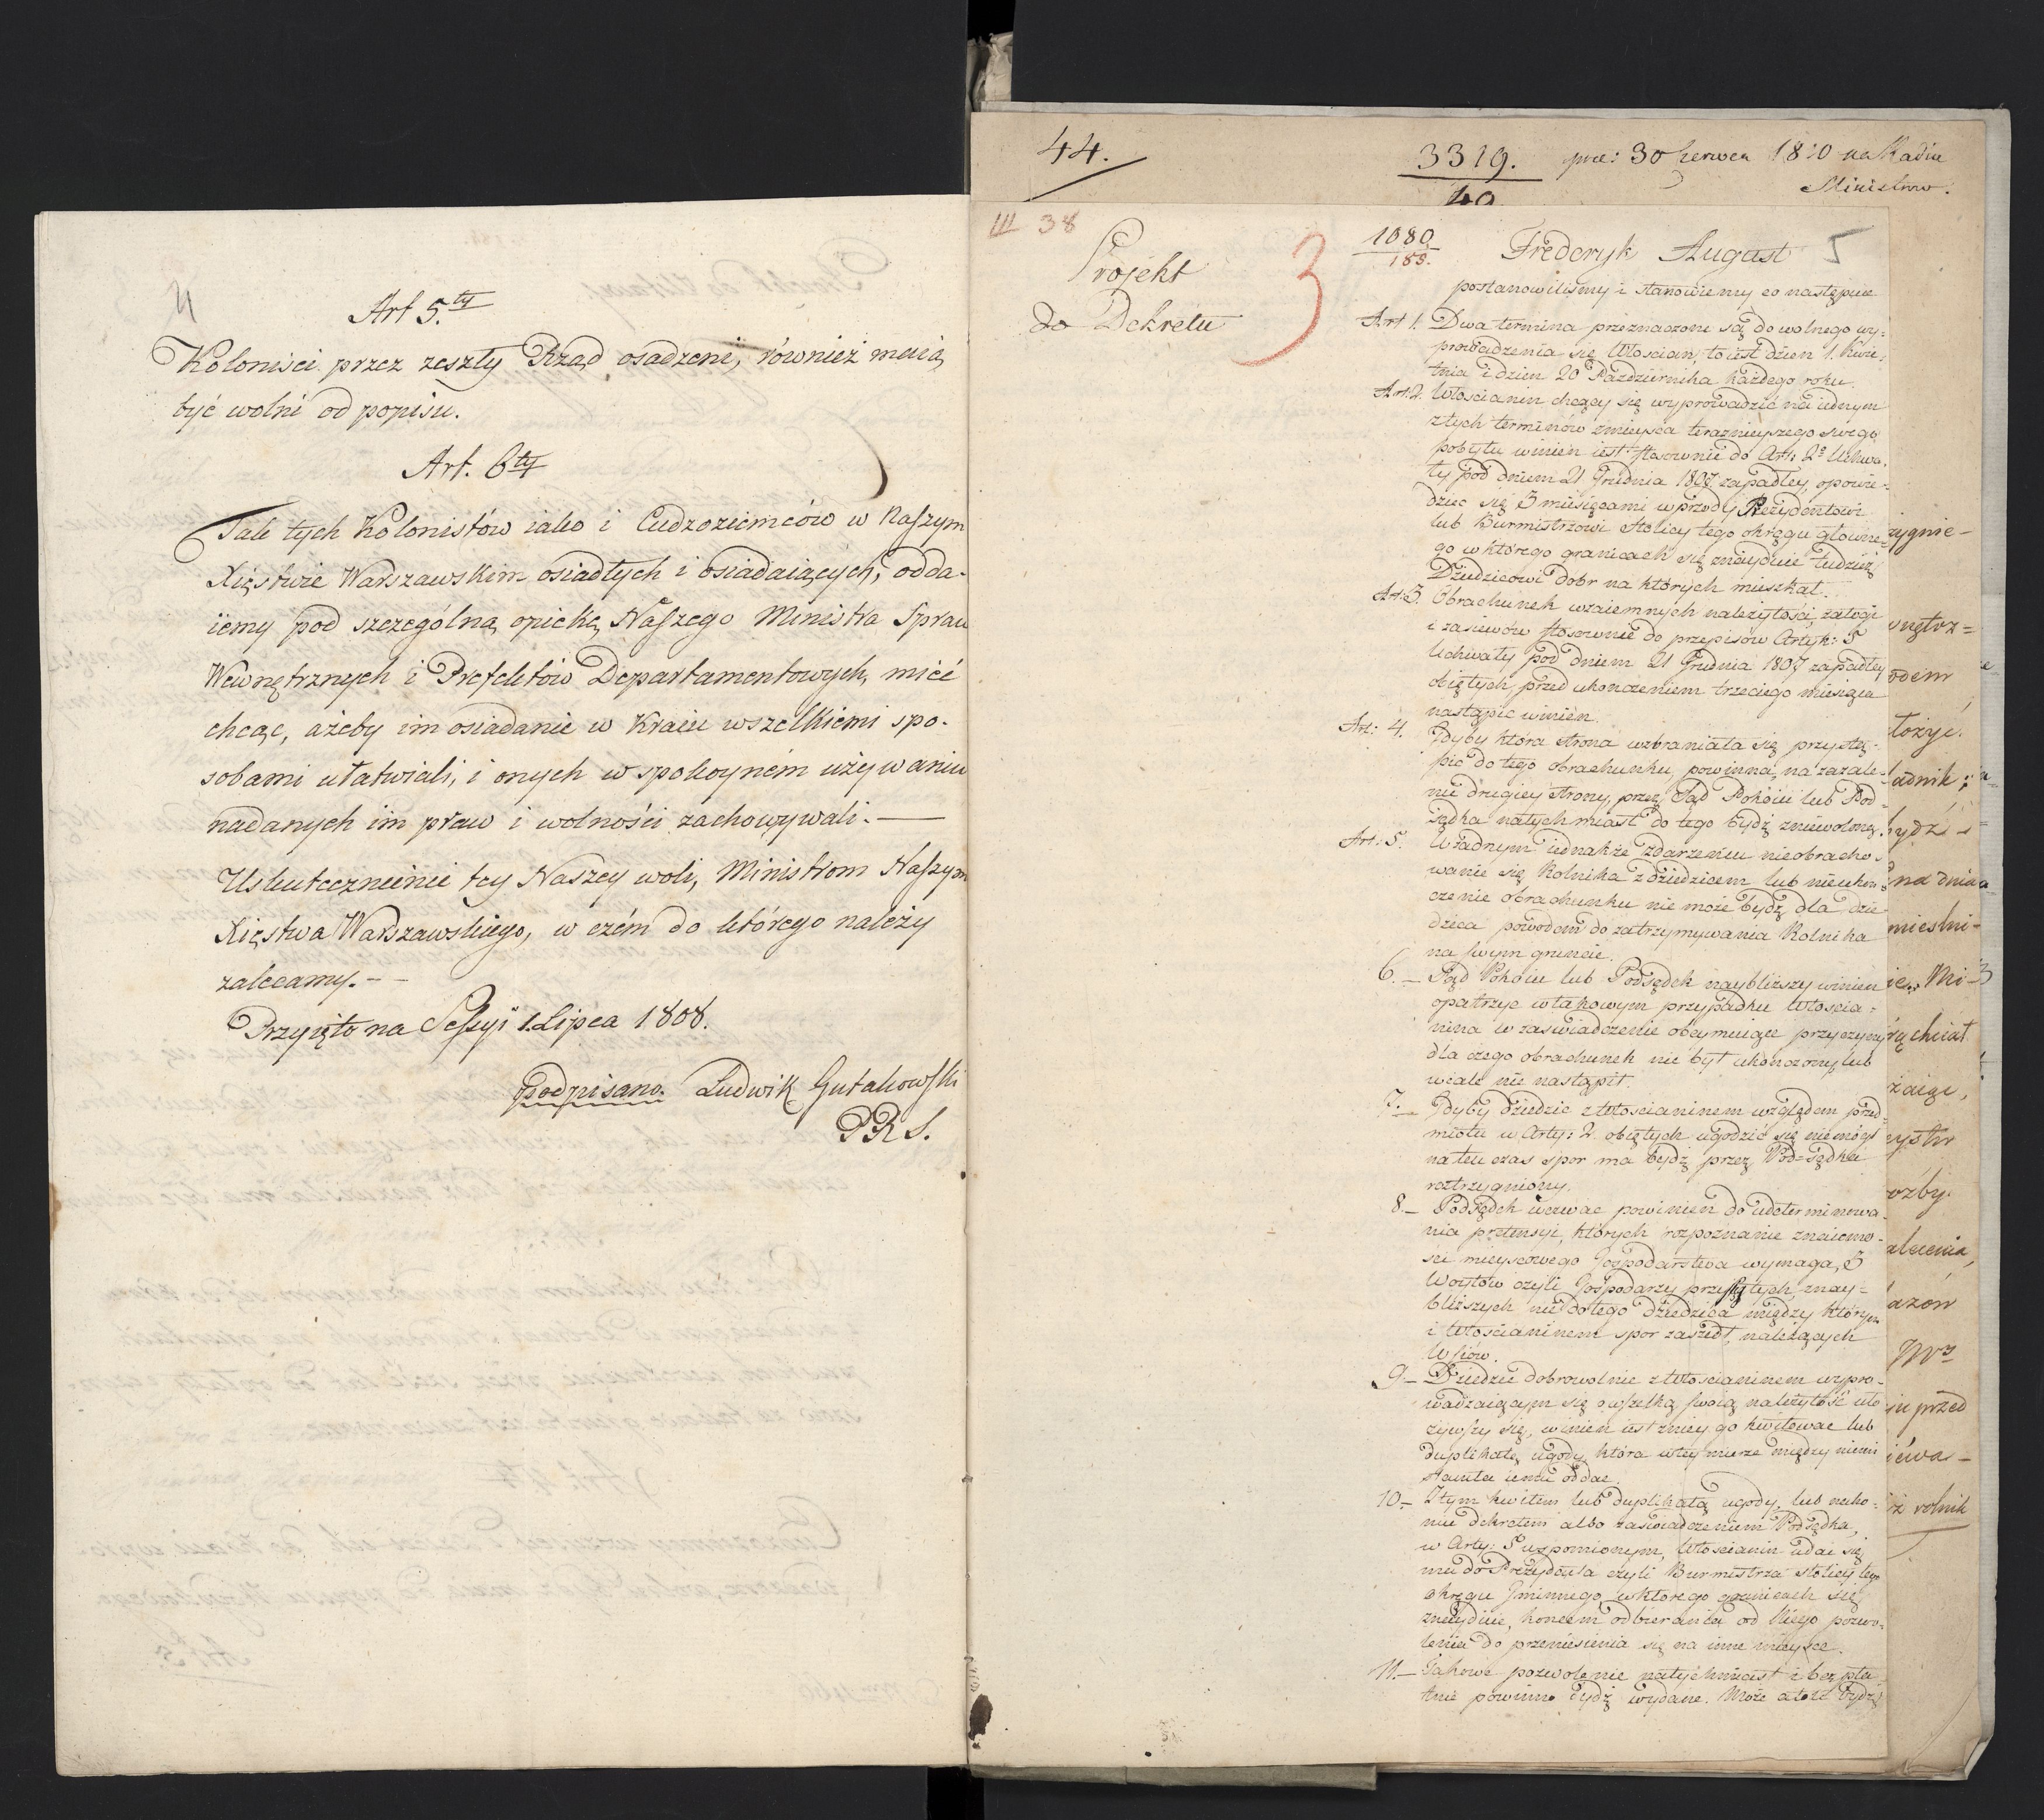 4
Art 5.ty
Koloniści przez zeszły Rząd osadzeni, również maią
być wolni od popisu.
Art. 6ty
Tak tych Kolonistów iako i Cudzoziemców w Naszym
Xięstwie Warszawskim osiadłych i osiadaiących, odda-
iemy pod szczególną opiekę Naszego Ministra Spraw
Wewnętrznych i Prefektów Departamentowych, mieć
chcąc, ażeby im osiadanie w Kraiu wszelkiemi spo-
sobami ułatwiali, i onych w spokoyném używaniu
nadanych im praw i wolności zachowywali.—
Uskutecznienie tey Naszey woli, Ministrom Naszym
Xięstwa Warszawskiego, w czém do którego należy
zalecamy.--
Przyięto na Sessyi 1. Lipca 1808.
Podpisano. Ludwik Gutakowski
PRS.
44.
3319.
40
prze: 30 Czerwca 1810 na Radzie
Ministrów.
III 38
3
5
Projekt
do Dekretu
1080
188.
Frederyk August
postanowiliśmy i stanowiemy co następuie
Art 1. Dwa termina przeznaczone są do wolnego wy-
prowadzenia się Włościan, to iest dzien 1. Kwie-
tnia i dzien 20 Pazdziernika każdego roku.
Art: 2. Włoscianin chcący się wyprowadzić na iednym
z tych terminów z mieysca teraznieyszego swego
pobytu winien iest stosownie do Art: 2o Uchwa-
ły pod dniem 21 Grudnia 1807 zapadłey, opowie-
dziec się 3 miesiącami wprzody Prezydentowi
lub Burmistrzowi Stolicy tego okręgu głowne-
go w którego granicach się znayduie tudzież
Dziedzicowi dobr na których mieszkał.
Art: 3. Obrachunek wzaiemnych należytości, załogi
i zasiewów stosownie do przepisów Artyk: 5
Uchwały pod dniem 21 Grudnia 1807 zapadłey
obiętych, przed ukończeniem trzeciego miesiąca
nastąpic winien.
Art: 4. Gdyby która strona wzbraniała się przystą-
pić do tego obrachunku, powinna, na zażale-
nie drugiey strony, przez Sąd Pokoiu lub Pod-
sędka natychmiast do tego bydź zniewolną.
Art: 5. W żadnym iednakże zdarzeniu nieobracho-
wanie się Rolnika z dziedzicem lub nieukoń-
czenie obrachunku nie może bydź dla dzie-
dzica powodem do zatrzymywania Rolnika
na swym gruncie.
6.— Sąd Pokoiu lub Podsędek naybliższy winien
opatrzyc w takowym przypadku Włościa-
nina w zaswiadczenie obeymuiące przyczyny
dla czego obrachunek nie był ukończony, lub
wcale nie nastąpił.
7.— Gdyby dziedzic z włościaninem względem przed-
miotu w Arty: 2. obiętych ugodzić się niemógł
na ten czas spor ma bydź przez Pod-sędka
roztrzygniony.
8.— Podsędek wezwac powinien do udeterminowa-
nia pretensyi, których rozpoznanie znaiomo-
sci mieyscowego Gospodarstwa wymaga, 3
Woytów czyli Gospodarzy przysięgłych, z nay-
bliższych nie do tego Dziedzica między którym
i Włościaninem spor zaszedł, należących
Wsiów.
9.— Dziedzic dobrowolnie z Włościaninem wypro-
wadzaiącym się o wszelką swoią należytość uło
żywszy się, winien iest z niey go kwitować lub
duplikatę ugody, która w tey mierze między niemi
stanęła iemu oddac.
10.— Z tym kwitem lub duplikatą ugody, lub nako-
niec dekretem albo zaswiadczeniem Podsędka,
w Arty: 5 wspomionym, Włościanin udai się
ma do Prezydenta czyli Burmistrza stolicy tego
okręgu Gminnego, w którego granicach się
znayduie, koncem odbierania od Niego pozwo-
lenia do przeniesienia się na inne mieysce.
11.— Takowe pozwolenie natychmiast i bezpła
tnie powinno bydź wydane. Może atoli bydź